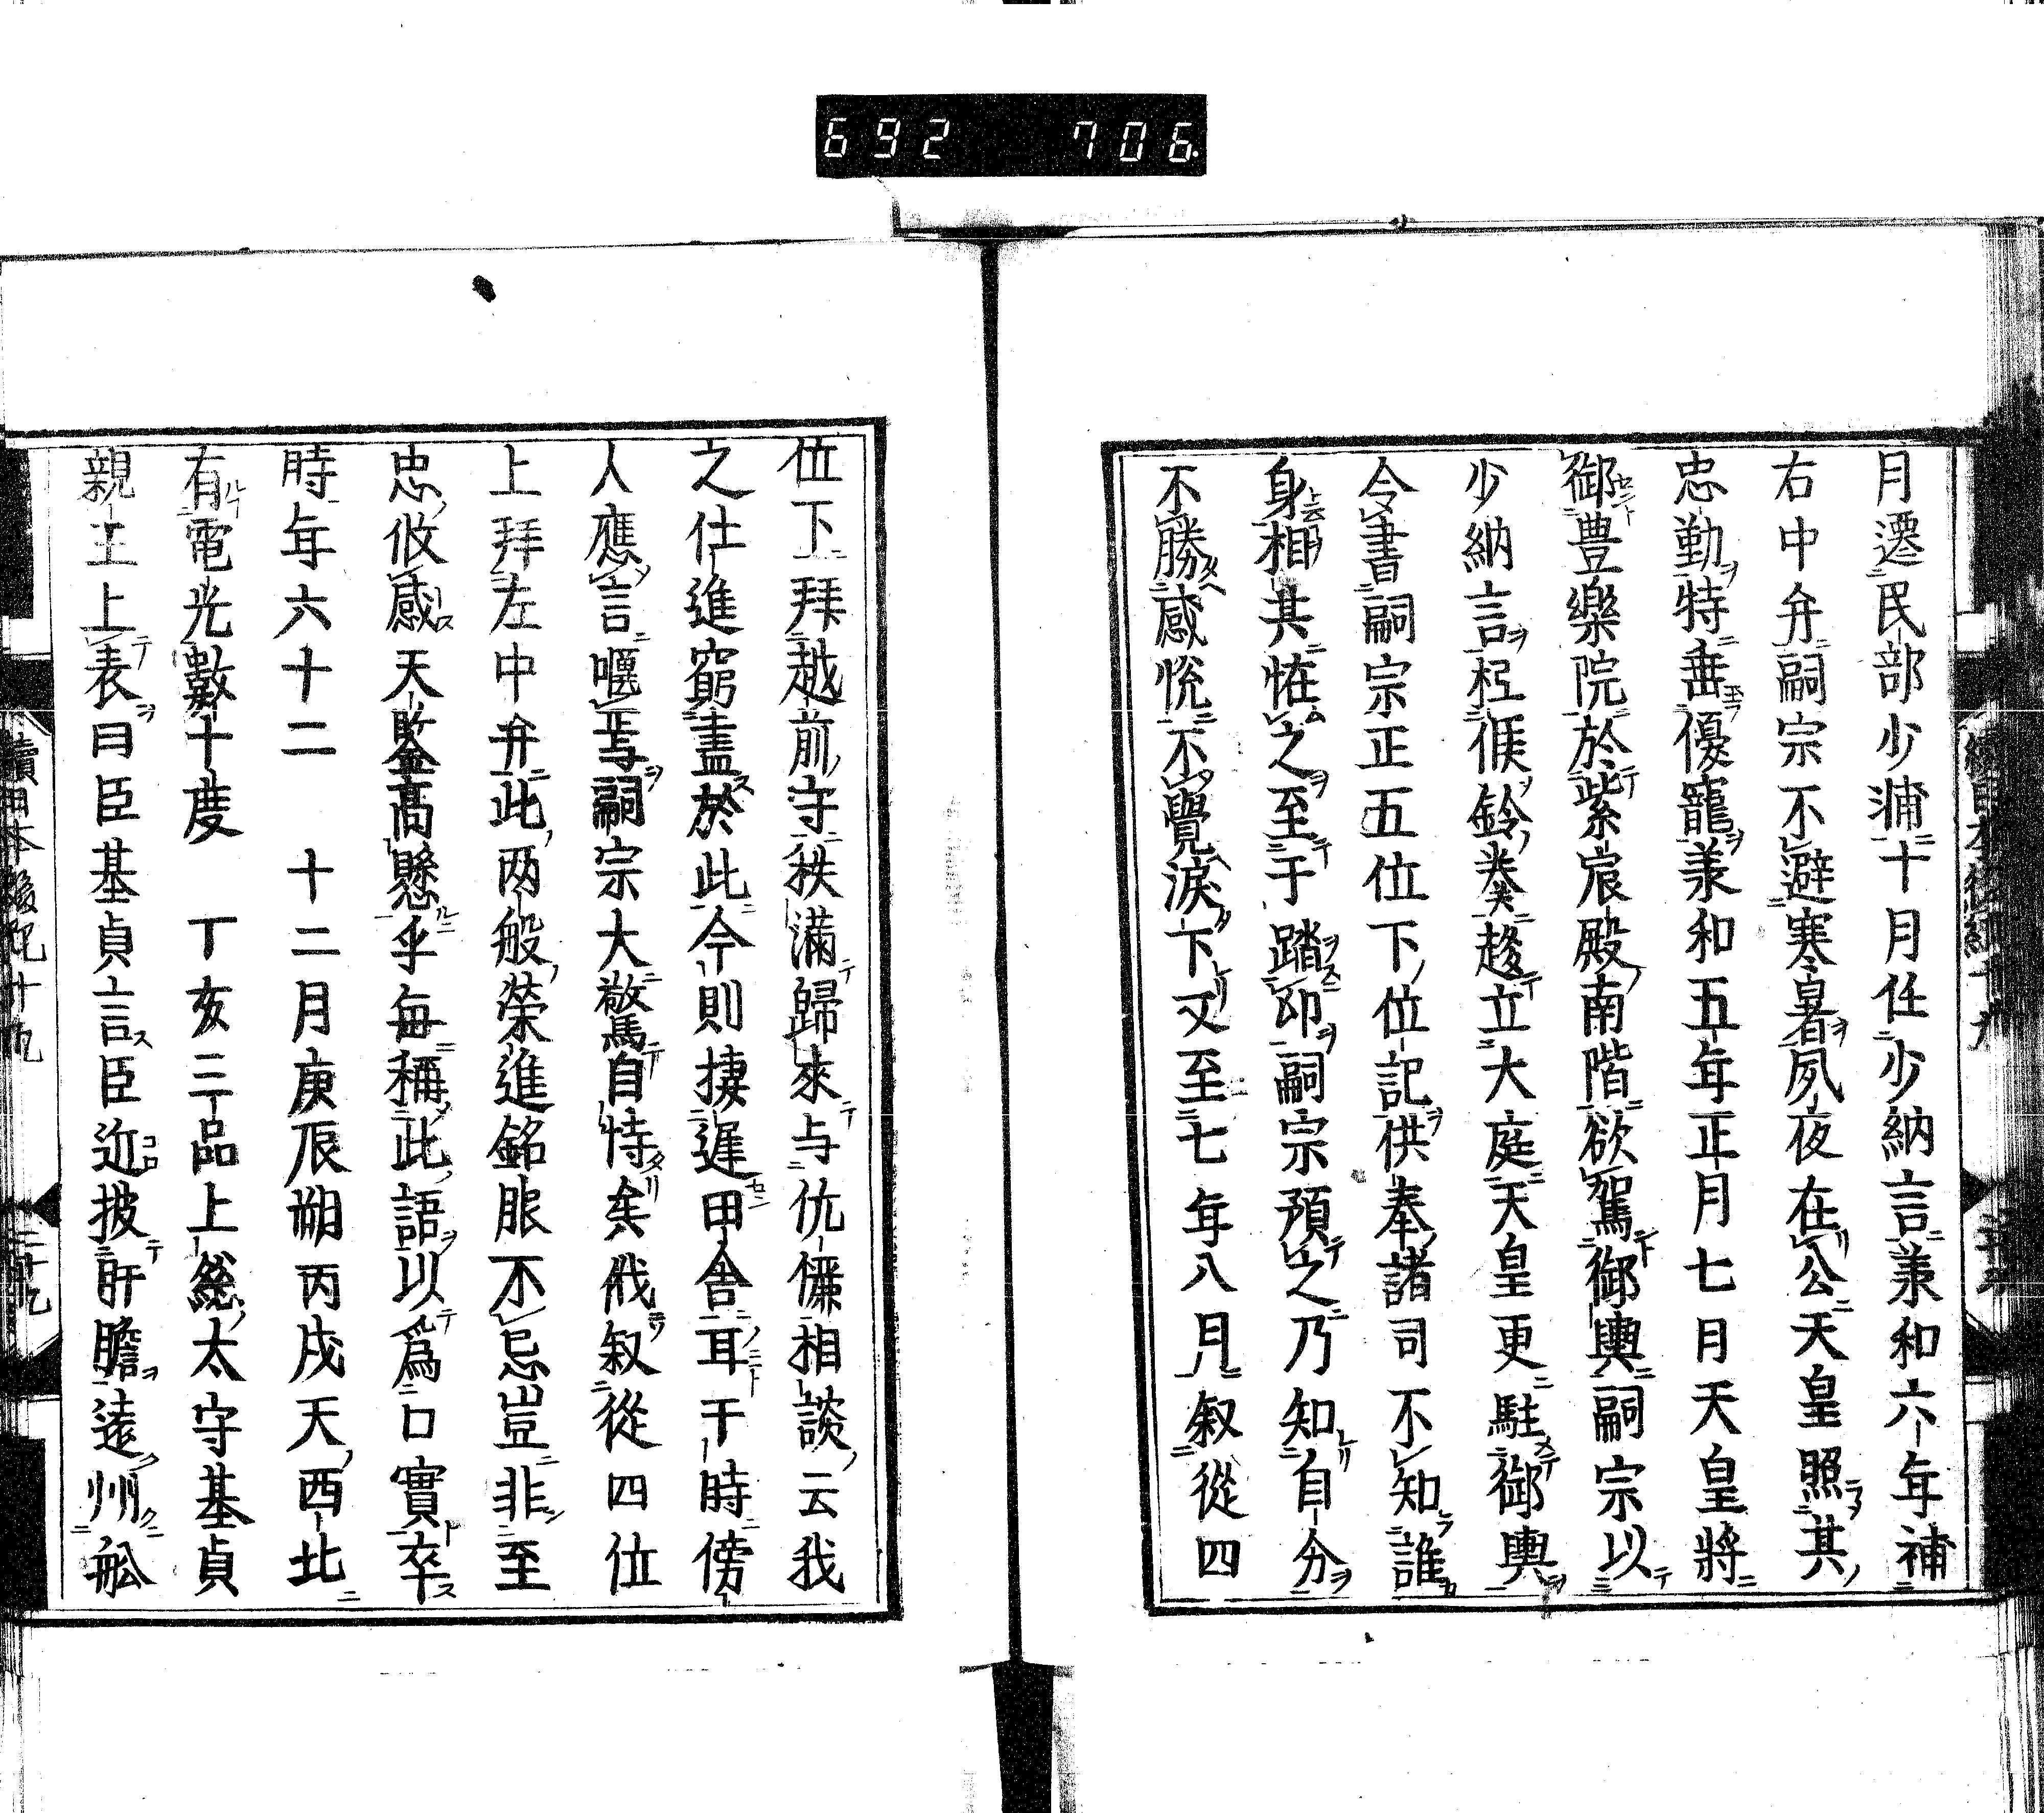 692 706.
月遷民部少浦十月任少納言兼和六年補
右中弁嗣宗不避寒暑夙夜在公天皇照其
忠勤特垂優寵兼和五年正月七日天皇將
御豊樂院於紫宸殿南階欲駕御輿嗣宗以
少納言候鈴奏趍立大庭天皇更駐御輿
令書嗣宗正五位下位記供奉諸司不知誰
身相共恠之至于踏印嗣宗預之乃知自分
不勝感悦不覺涙下又至七年八月叙從四
位下拜越前守秩滿歸來与伉儷相談云我
之仕進窮盡於此今則捿遲田舎耳于時傍
人應言嗣宗大驚自恃矣俄叙從四位
上拜左中弁此兩般榮進銘肝不忘豈非至
忠攸感天鑒髙懸乎毎稱此語以爲口實卒
時年六十二 十二月庚辰朔丙戌天西北
有電光數十度 丁亥三品上総太守基貞
親王上表曰臣基貞言臣近披肝膽遠州舩
續日本後紀十九 二十九